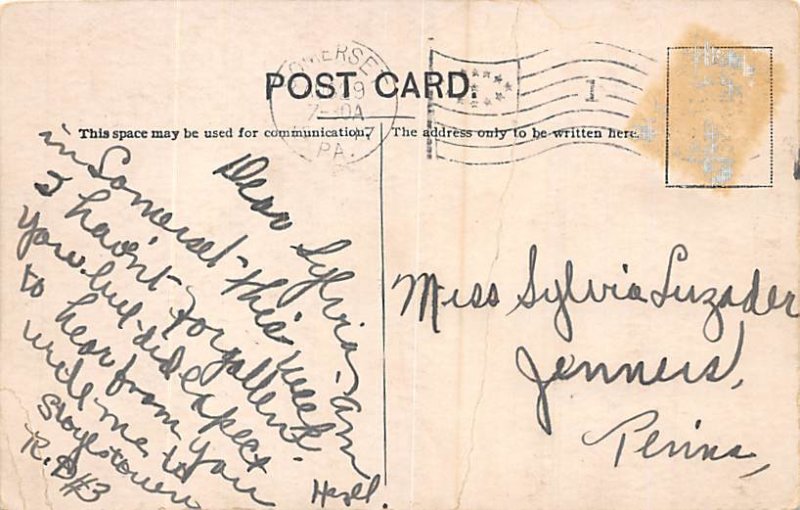 POST CARD.
SOMERSET
PA.
1
This space may be used for communication.
The address only to be written here.
Dear Sylvia - am
in Somerset - this week
I havn't forgotten
you. but did expect
to hear from you
write me to
Stoystown
R.D #3
Hazel.
Miss Sylvia Luzader
Jenners,
Penna,